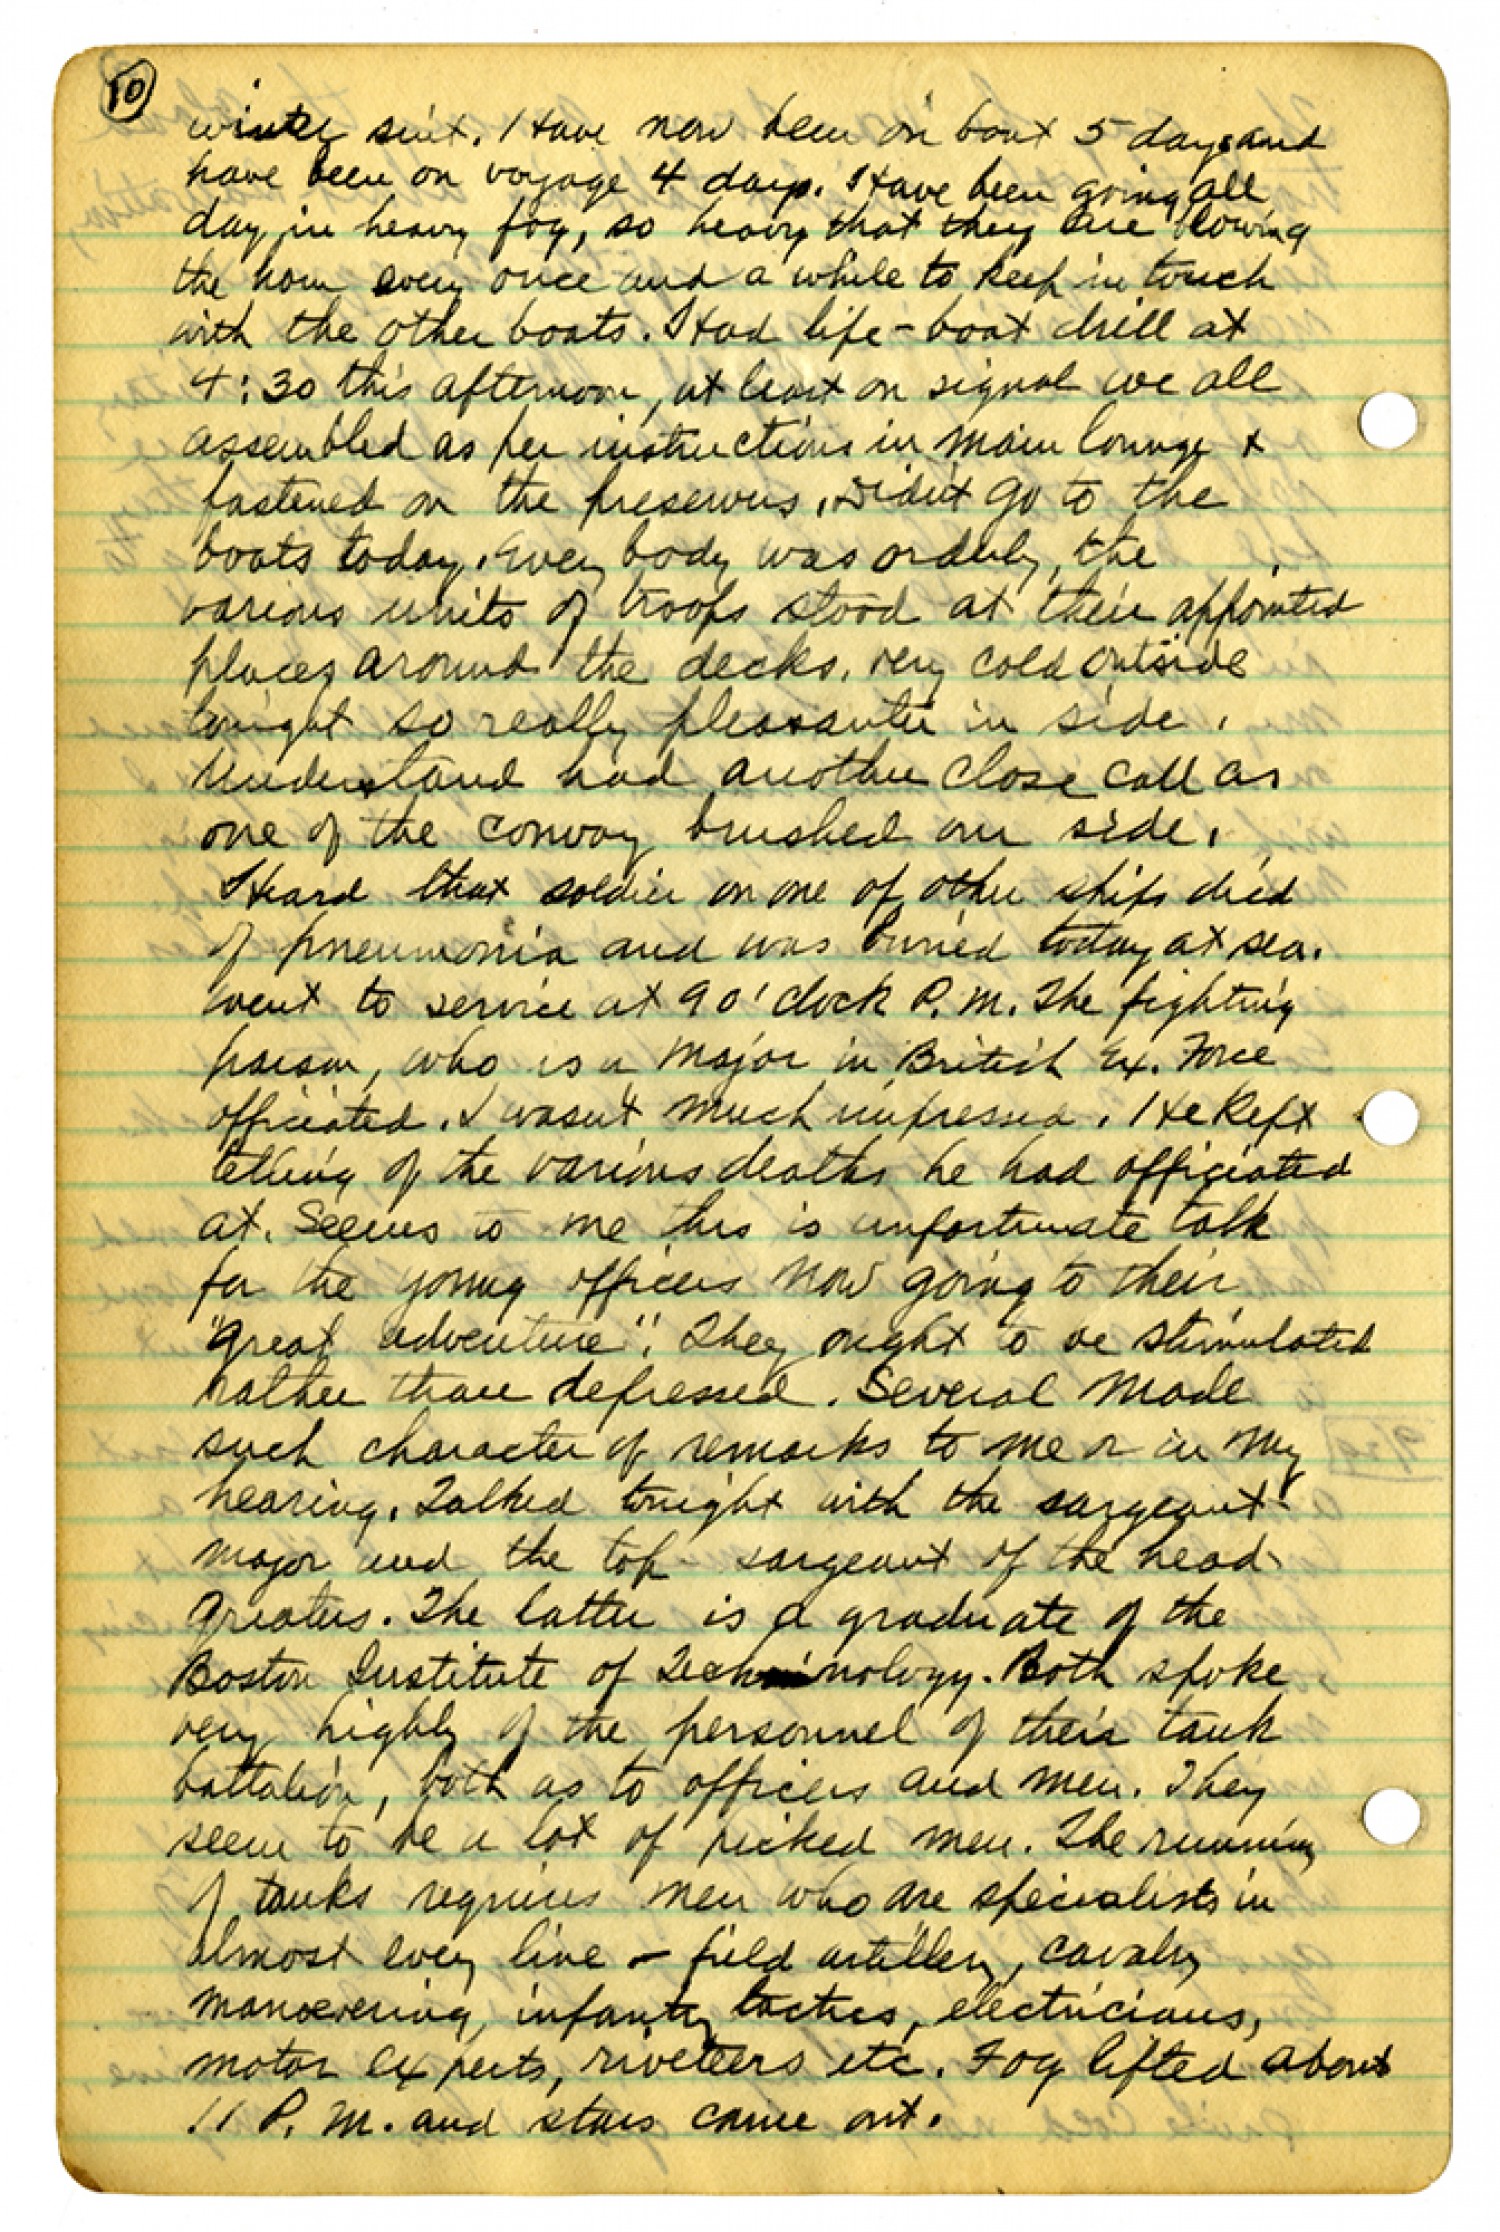 10
winter suit. Have now been on boat 5 days and
have been on voyage 4 days. Have been going all
day in heavy fog, so heavy that they are blowing
the horn every once and a while to keep in touch
with the other boats. Had life-boat drill at
4:30 this afternoon, at least on signal we all
assembled as per instructions in main lounge +
fastened on the preservers, didn't go to the
boats today. Every body was orderly, the
various units of troops stood at their appointed
places around the decks. very cold outside
tonight so really pleasanter in side.
Understand had another close call as
one of the convoy brushed our side.
Heard that soldier on one of other ships died
of pneumonia and was buried today at sea.
went to service at 9 o'clock P.M. The fighting
parson, who is a Major in British Ex. Force
officiated. I wasn't much impressed. He kept
telling of the various deaths he had officiated
at. Seems to me this is unfortunate talk
for the young officers now going to their
"great adventure". They ought to be stimulated
rather than depressed. Several made
such character of remarks to me or in my
hearing. Talked tonight with the sargeant-
major and the top-sargeant of the head-
quarters. The latter is a graduate of the
Boston Institute of Technology. Both spoke
very highly of the personnel of their tank
battalion, both as to officers and men. They
seem to be a lot of picked men. The running
of tanks requires men who are specialists in
almost every line - field artillery, cavalry
manoevering, infantry tactics, electricians,
motor experts, riveteers etc. Fog lifted about
11 P.M. and stars came out.